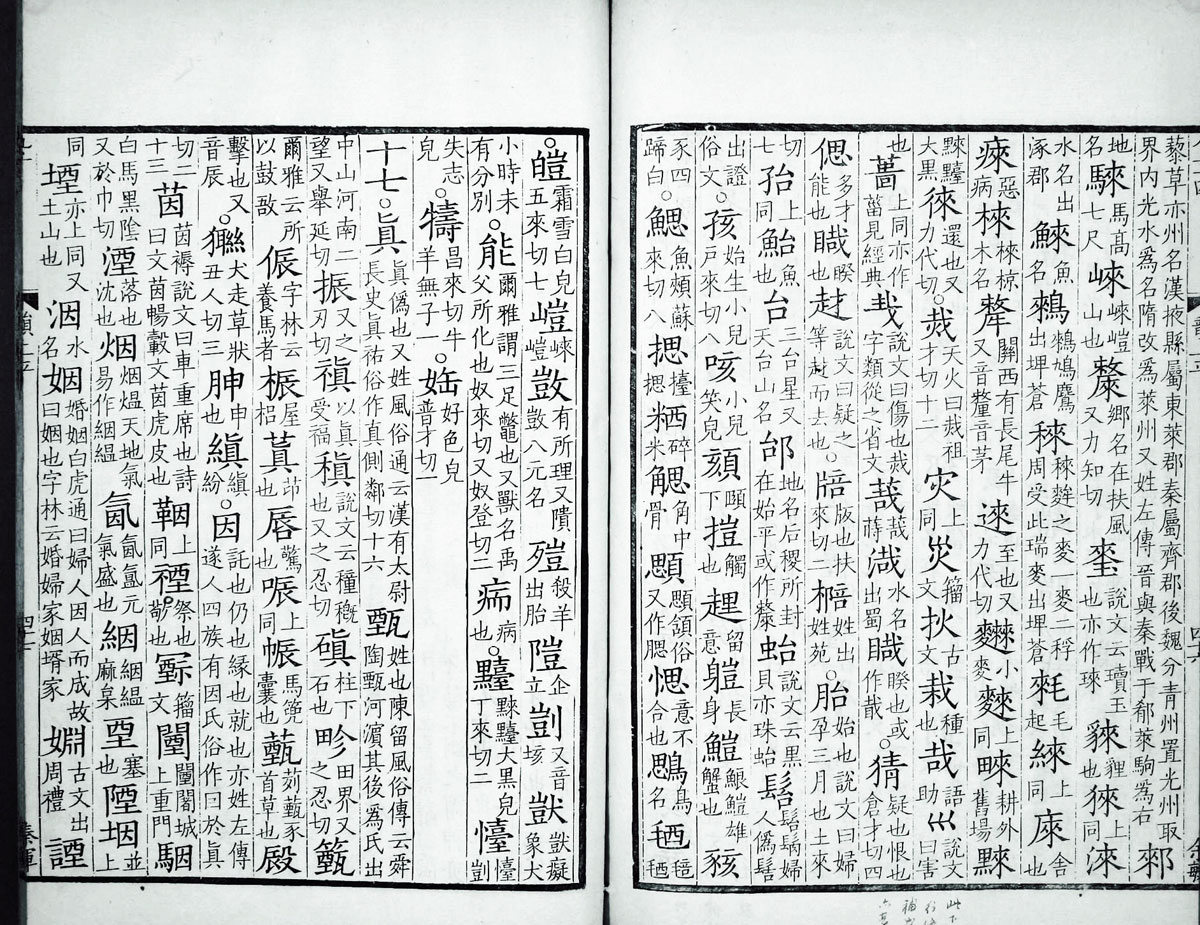 藜草亦州名漢掖縣屬東萊郡秦屬齊郡後魏分青州置光州取界内光水爲名隋改爲萊州又姓左傳晉與秦戰于郁萊駒爲右郲
地名騋馬高七尺崍崍嵦山也斄鄉名在扶風又力知切說文云瓄玉也亦作琜貍也猍上同淶
水名出涿郡鯠魚名鶆鶆鳩鷹出埤蒼秾之麥一麥二稃周受此瑞麥出埤蒼毛起綀上同庲舍也
㾢惡病棶棶椋木名犛關西有長尾牛又音氂音茅逨至也又力代切䴱小麥上同耕外舊場䵩
䵩䵴大黑徠還也又力代切。烖天火曰烖祖才切十二灾上同災籀文㧒古文栽種也哉語助巛說文曰害
也葘上同亦作菑見經典𢦏說文曰傷也烖字類從之省文䔂䔂蒔渽水名出蜀䁱睽也或作䁱。猜疑也恨也倉才切四
偲多才能也䁱睽也赼說文曰疑之等赼而去也。㾦版也扶來切二棓姓出姓苑。胎始也說文曰婦孕三月也土來
切七孡上同鮐魚也台三台星又天台山名邰地名后稷所封在始平或作斄蛤說文云黑貝亦珠蛤䯂䯂䰄婦人僞䯂
出證俗文。孩始生小兒戶來切八咳小兒笑皃頦頤下㨟觸也䞨留意䠽身長䱺䱺雄蟹也豥
豕四蹄白。鰓魚頰蘇來切八揌揌擡粞碎米䚡角中骨顋顋頷俗又作腮愢意不合也鳥名毸毰毸
。皚霜雪白皃五來切七嵦崍嵦敳有所理又隤敳八元名㱯殺羊出胎隑企立剴又音該獃獃癡象犬
小時未有分別。能爾雅謂三足鼈也又獸名禹父所化也奴來切又奴登切二㾍病也。䵴䵩䵴大黑皃丁來切二懛懛剴
失志皃。犨昌來切牛羊無子一。㛅好色皃普才切一
十七。眞眞僞也又姓風俗通云漢有太尉長史眞祐俗作真側鄰切十六甄姓也陳留風俗傳云舜陶甄河濵其後爲氏出
中山河南二望又舉延切振又之刃切禛以眞受福稹說文云穜穊也又之忍切磌柱下石也畛田界又之忍切籈
爾雅云所以鼓敔侲字林云養馬者桭屋梠蒖茚也脣驚也唇上同帪馬㲃囊也薽䒢薽豕首草也𣪛
擊也又音辰。獜犬走草狀丑人切三胂申也縝縝紛。因託也仍也緣也就也亦姓左傳遂人四族有因氏俗作囙於眞
切二十三茵茵褥說文曰車重席也詩曰文茵暢轂文茵虎皮也鞇上同禋祭也敬也籀文闉闉闍城上重門駰
白馬黑陰又於巾切湮落也沈也烟烟熅天地氣易作絪縕氤氤氳元氣盛也絪絪縕麻枲垔塞也陻垔並上
同堙亦上同又土山也洇水名姻婚姻白虎通曰婦人因人而成故曰姻也字林云婚婦家姻壻家婣古文出周禮諲